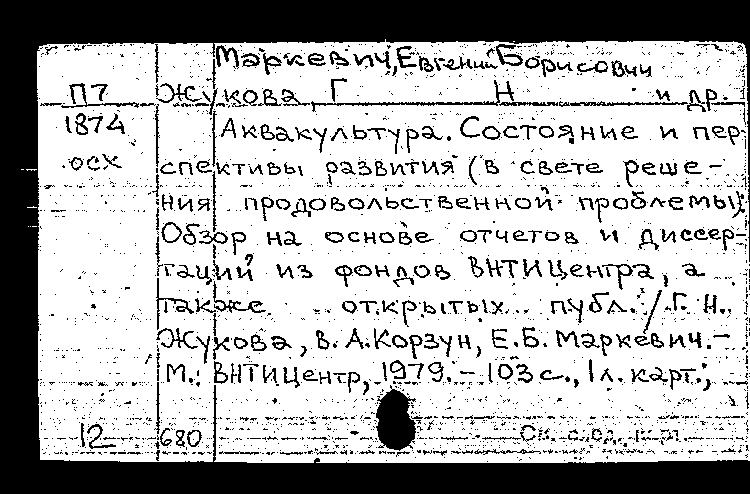 Маркевич, Евгений Борисович
П7 Жукова, Г Н и др.
1874 Аквакультура. Состояние и пер
осх спективы развития (в свете реше-
ния продовольственной проблемы):
Обзор на основе отчетов и диссер-
таций из фондов ВНТИЦентра, а
также открытых публ. / Г. Н.
Жукова, В. А. Корзун, Е. Б. Маркевич. –
М.: ВНТИЦентр, 1979. – 103 с., 1 л. карт.;
12 680 См. след. карт.